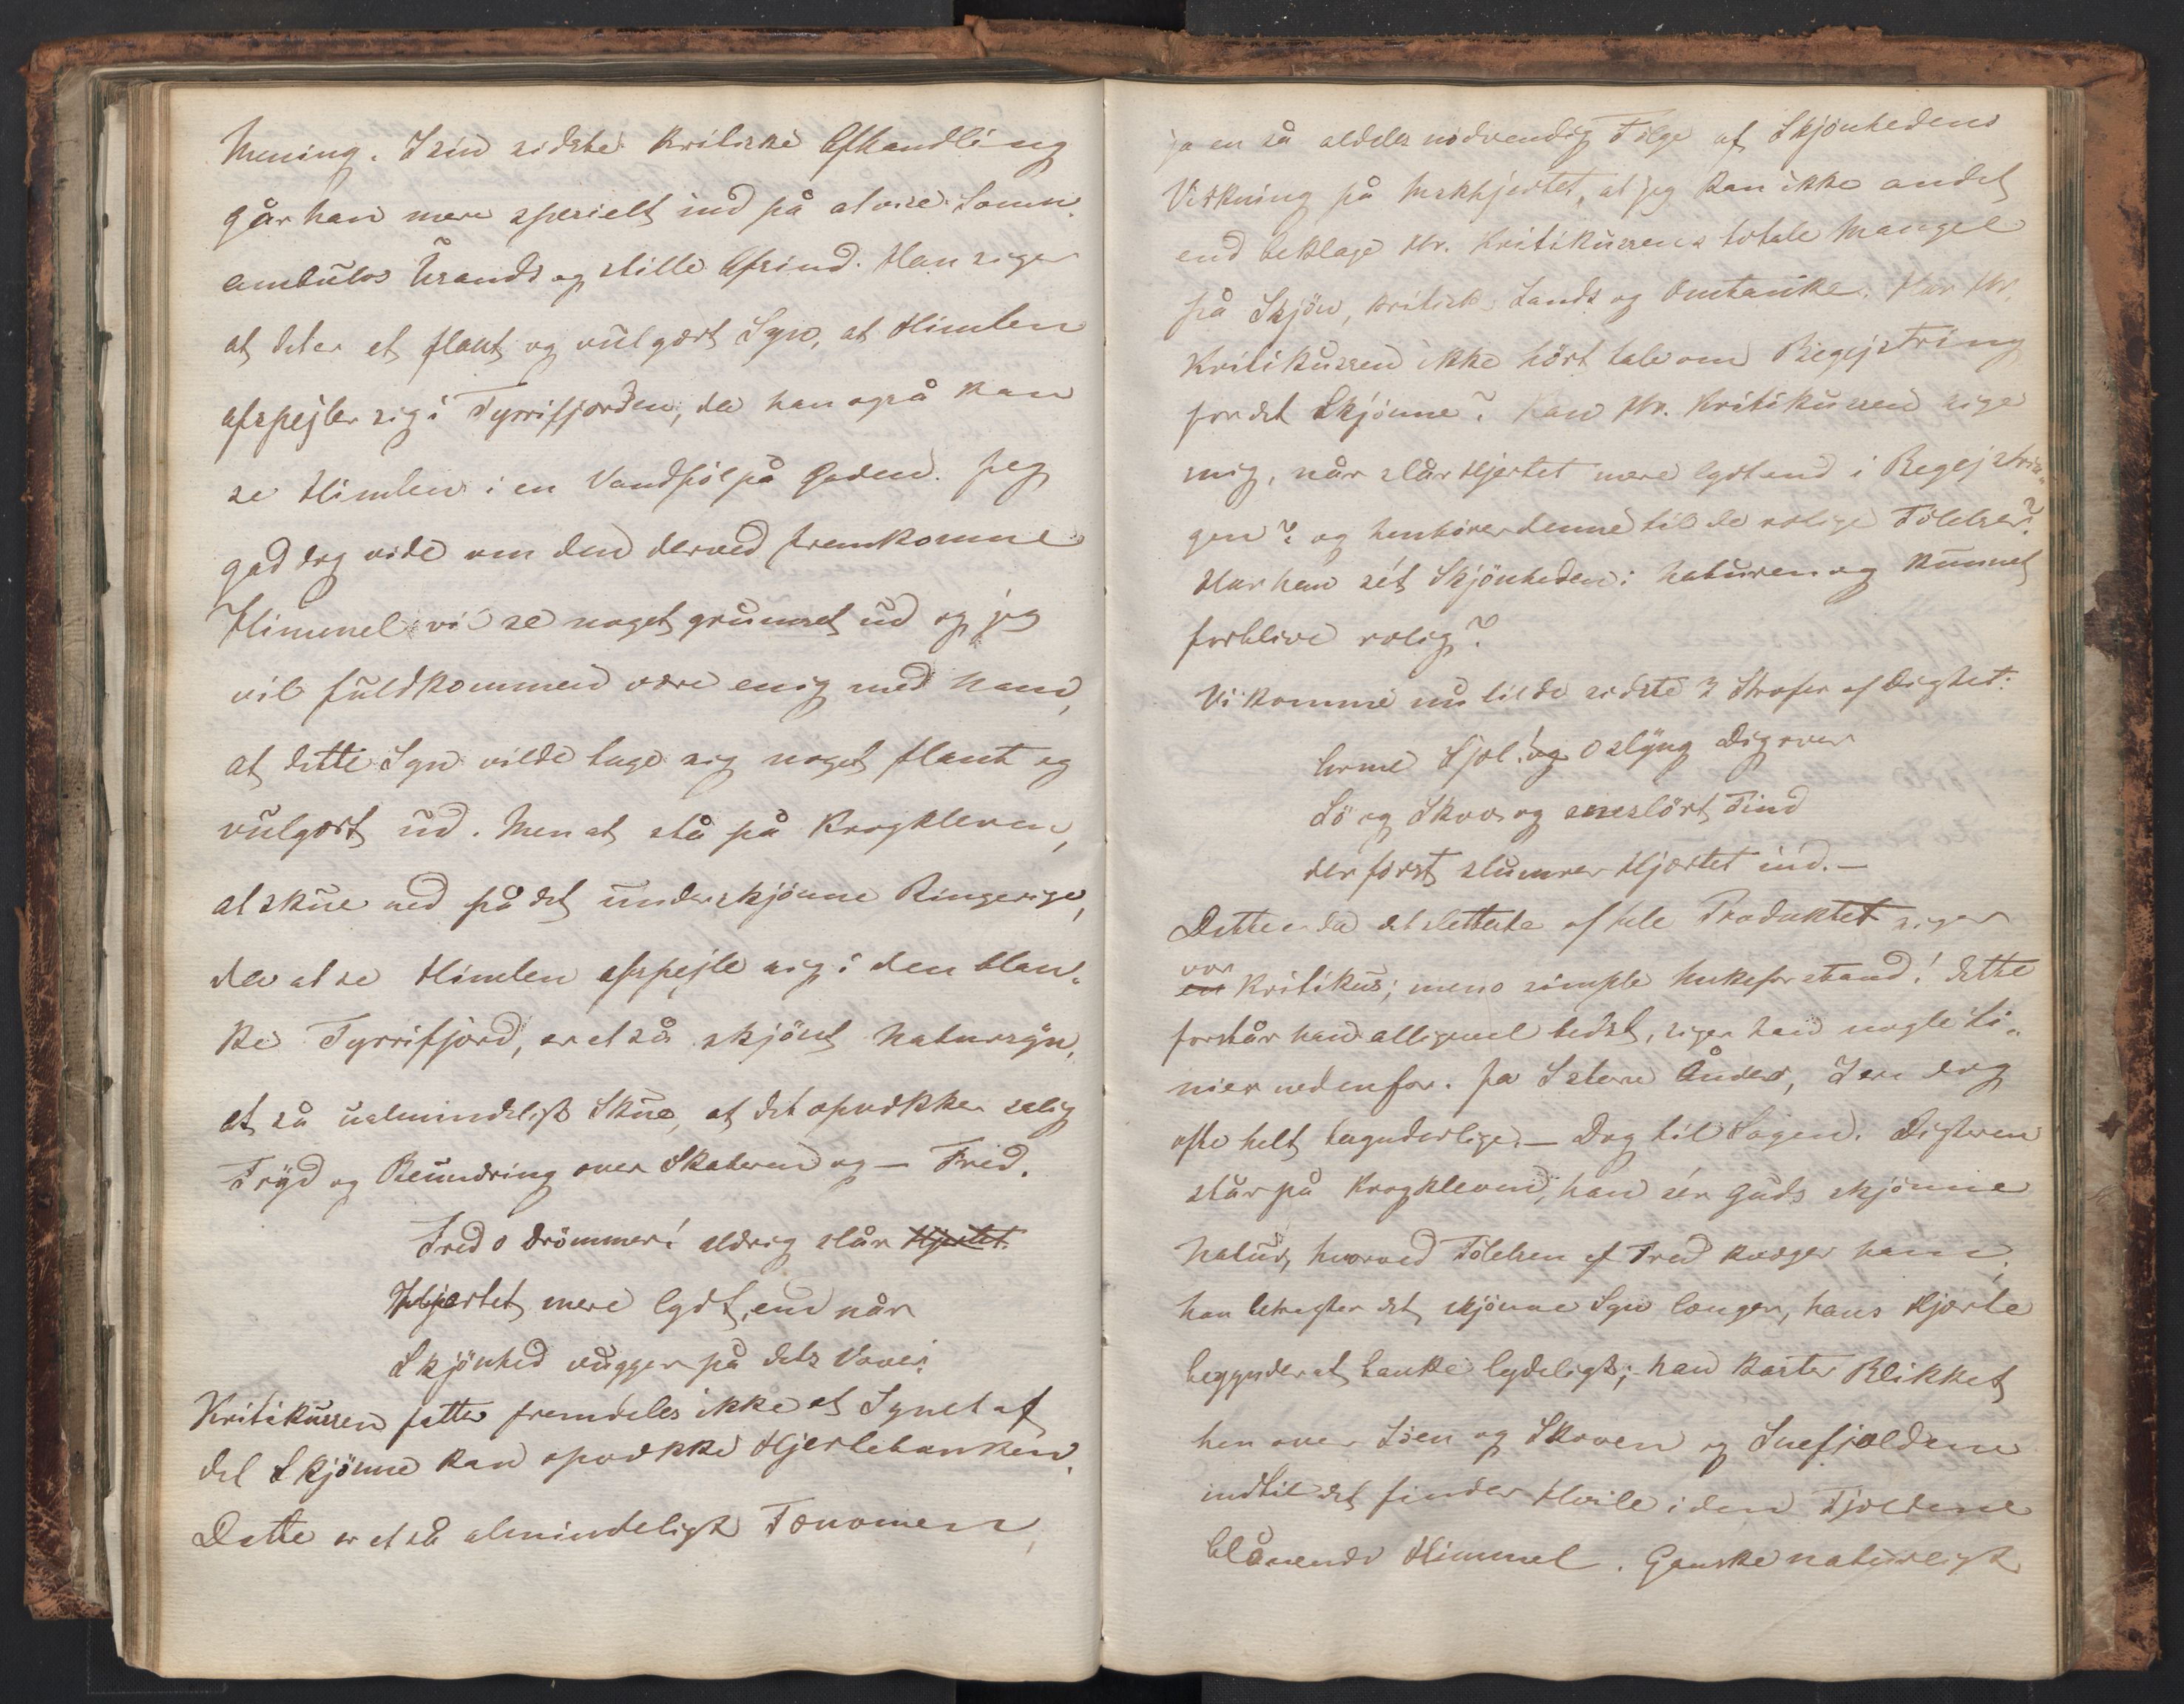 Mening. I sin sidste kritiske Afhandling
går han mere specielt ind på at vise Somn-
ambulos Usands og stille Afsind. Han siger
at det er et flaut og vulgært Syn, at Himlen
afspejler sig i Tyrrifjorden, da han også kan
se Himlen i en Vandpöl på Gaden. Jeg
gad dog vide om den derved fremkomne
Himmel vil se noget grumset ud og jeg
vil fuldkommen være enig med ham,
at dette Syn vilde tage sig noget flaut og
vulgært ud. Men at stå på Krogkleven,
at skue ned på det underskjönne Ringerige,
der at se Himlen afspejle sig i den blan-
ke Tyrrifjord, er et så skjönt Natursyn,
et så ualmindeligt Skue, at det opvækker salig
Fryd og Beundring over Skaberen og — Fred.
Fred o Drömmer! aldrig slår Hjertet
Hjertet mere lydt, end når
Skjönhed vugger på dets Vover.
Kritikussen fatter fremdeles ikke at Synet af
det Skjönne kan opvække Hjertebanken.
Dette er et så almindeligt Fænomen,
ja en så aldeles nödvendig Fölge af Skjönhedens
Virkning på Mskhjertet, at jeg kan ikke andet
end beklage Hr. Kritikussens totale Mangel
på Skjön, kritisk Sands og Omtanke. Har Hr.
Kritikussen ikke hört tale om Begejstring
for det Skjönne? Kan Hr. Kritikussen sige
mig, når slår Hjertet mere lydt end i Begejstrin-
gen? og henhörer denne til de rolige Fölelser?
Har han sét Skjönheden i Naturen og kunnet
forblive rolig?
Vi komme nu til de sidste 3 Strofer af Digtet:
Arme Sjæl! og O slyng Dig over
Sö og Skov og sneslört Tind
der först slumrer Hjertet ind. —
Dette er da det sletteste af hele Produktet siger
vor
en Kritikus; men o simple Menkeforstand! dette
forstår han alligevel bedst, siger han nogle Li-
nier nedenfor. Ja I store Ånder, I ere dog
ofte helt begynderlige. — Dog til Sagen. Digteren
står på Krogkleven, han sér Guds skjönne
Natur, hvorved Fölelsen af Fred kvæger ham,
han betragter det skjönne Syn længer, hans Hjerte
begynder at banke lydeligt; han kaster Blikket
hen over Söen og Skoven og Snefjældene
indtil det finder Hvile i den Fjældene
blånende Himmel. Ganske naturligt